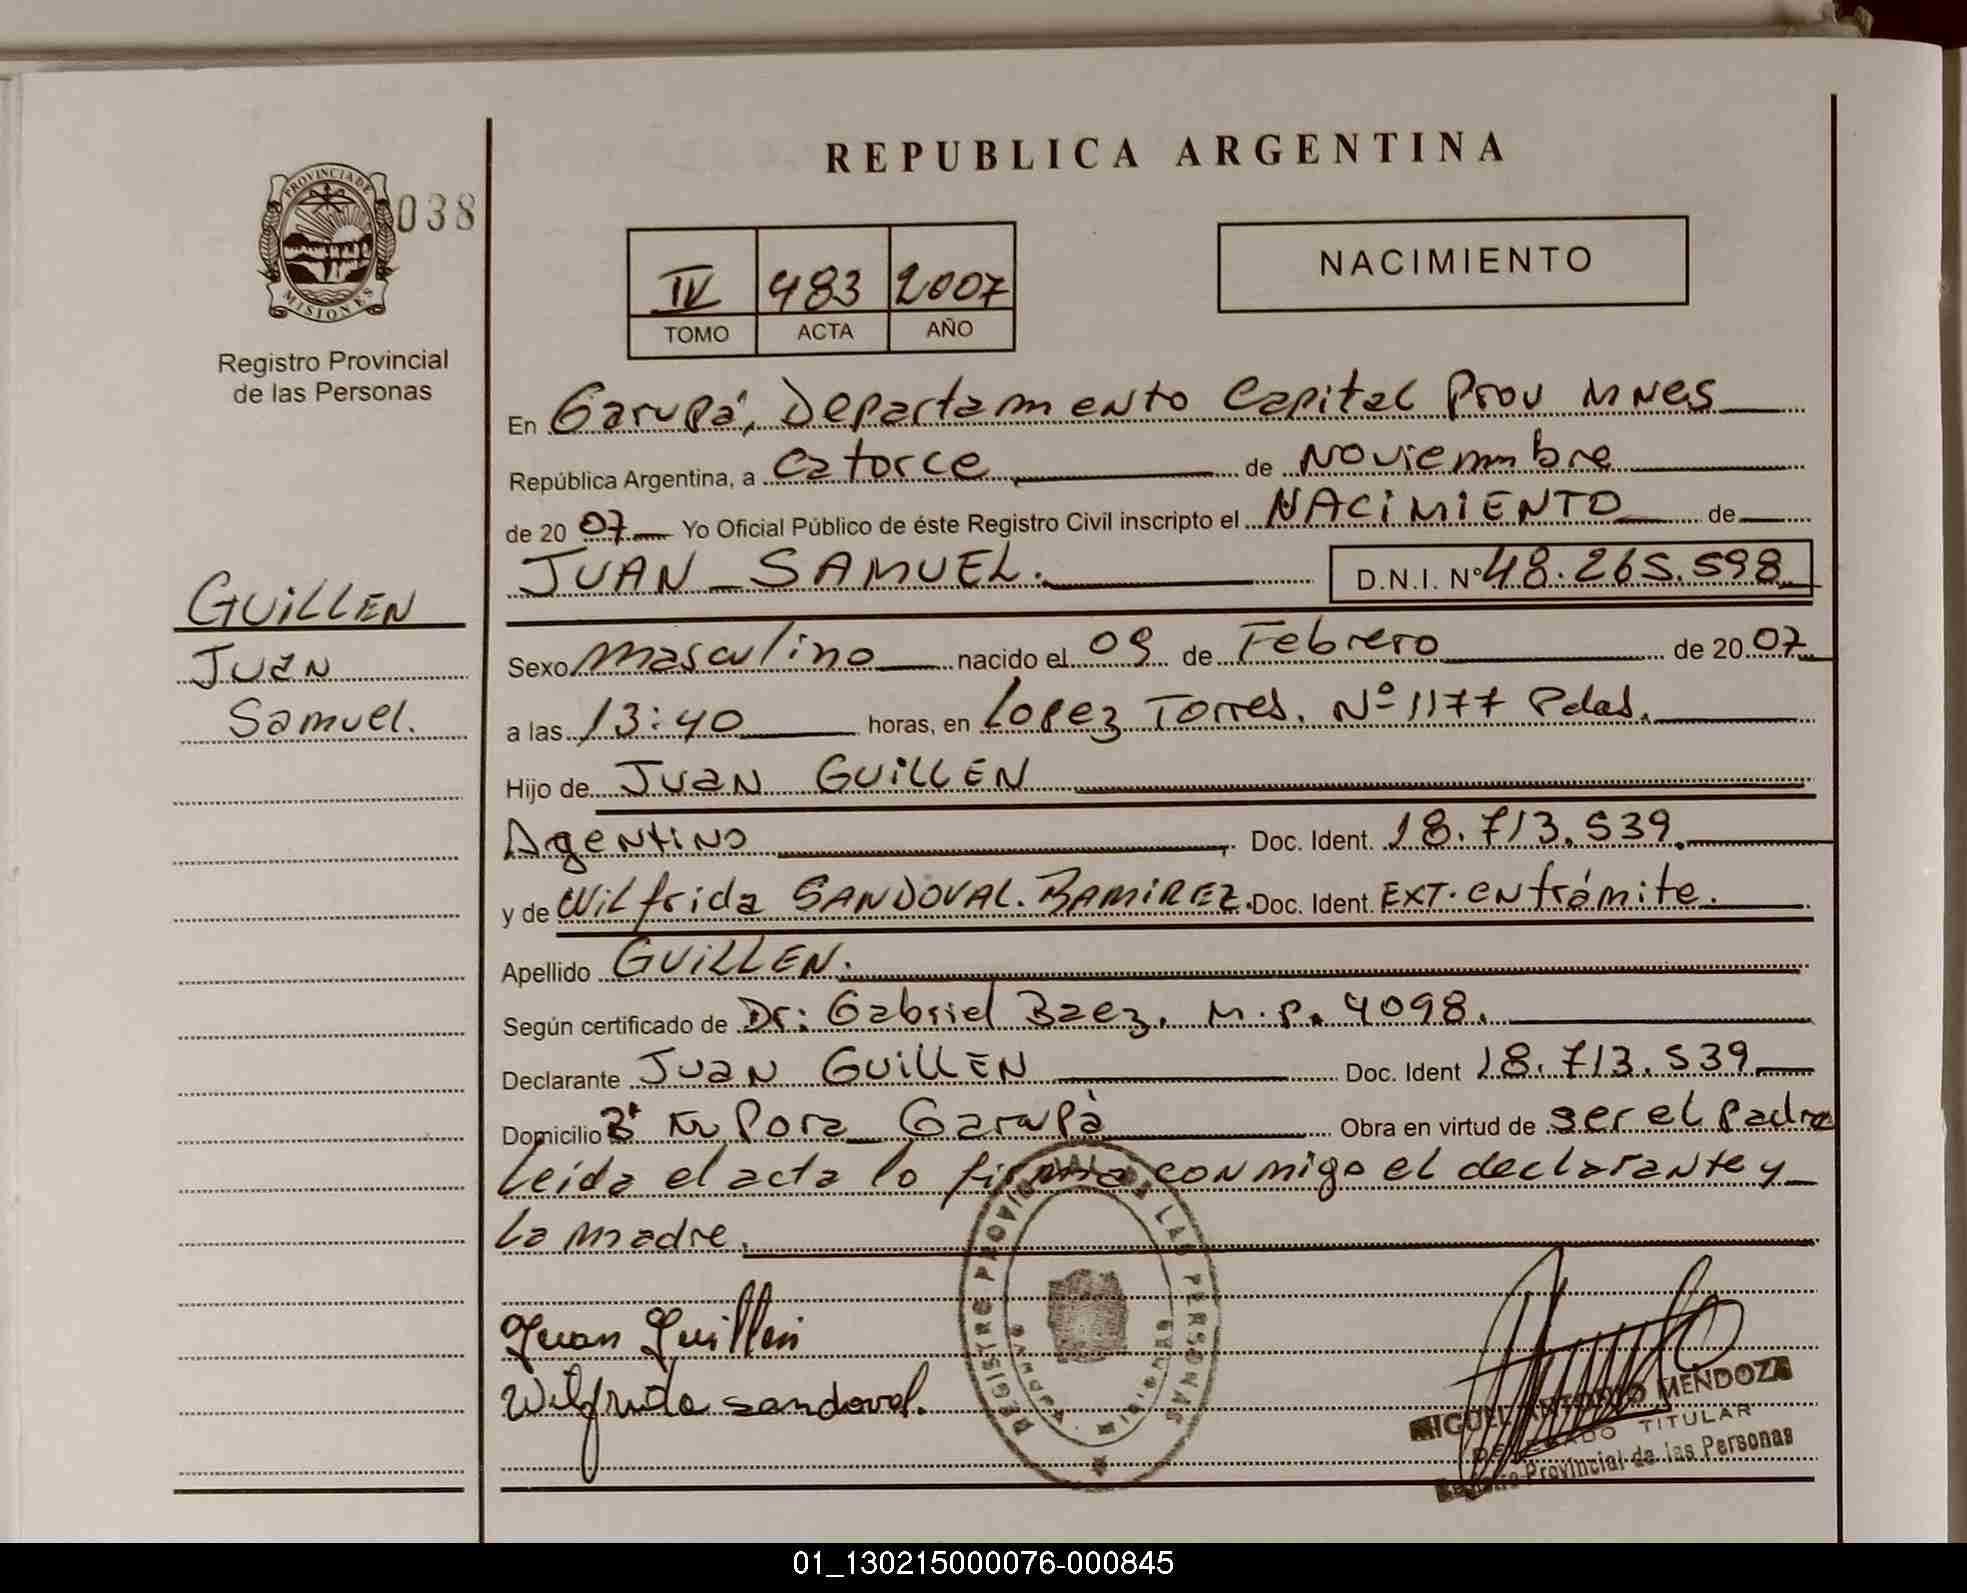 REPUBLICA ARGENTINA
PROVINCIA DE
MISIONES
038
Registro Provincial
de las Personas
IV 483 2007
TOMO ACTA AÑO
NACIMIENTO
En Garupá, Departamento Capital Prov Mnes
República Argentina, a catorce de Noviemmbre
de 2007 Yo Oficial Público de éste Registro Civil inscripto el NACIMIENTO de
JUAN SAMUEL. D.N.I. Nº 48.265.598
GUILLEN
Juan
Samuel.
Sexo masculino nacido el 09 de Febrero de 2007
a las 13:40 horas, en Lopez Torres. Nº 1177 Pdas.
Hijo de Juan GUILLEN
Argentino Doc. Ident. 18.713.539.
y de Wilfrida SANDOVAL. RAMIREZ. Doc. Ident. EXT. en trámite.
Apellido GUILLEN.
Según certificado de Dr: Gabriel Baez. M.P. 4098.
Declarante Juan GUILLEN Doc. Ident 18.713.539
Domicilio Bº Pora Garupà Obra en virtud de ser el padre
Leída el acta lo firma conmigo el declarante y
la madre.
Juan Guillen
Wilfrida sandoval.
REGISTRO PROVINCIAL DE LAS PERSONAS
MIGUEL ANTONIO MENDOZA
DELEGADO TITULAR
Registro Provincial de las Personas
01_130215000076-000845